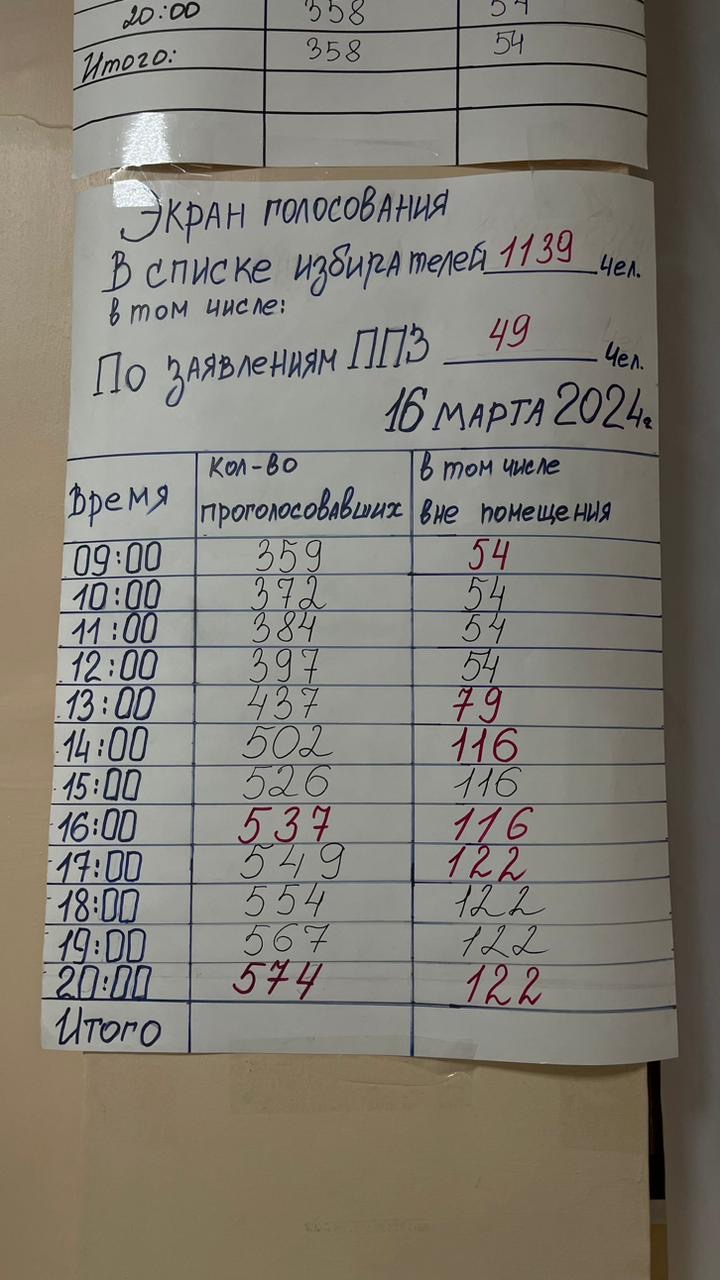 20:00 358 54
Итого: 358 54
Экран голосования
В списке избирателей 1139 чел.
в том числе:
По заявлениям ППЗ 49 чел.
16 марта 2024г.
Время кол-во проголосовавших в том числе вне помещения
09:00 359 54
10:00 372 54
11:00 384 54
12:00 397 54
13:00 437 79
14:00 502 116
15:00 526 116
16:00 537 116
17:00 549 122
18:00 554 122
19:00 567 122
20:00 574 122
Итого